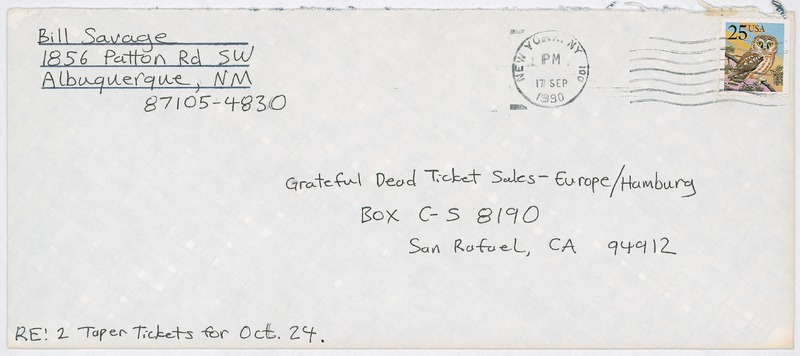 Bill Savage
1856 Patton Rd SW
Albuquerque, NM
87105-4830
NEW YORK, NY 100
PM
17 SEP
1990
25 USA
Grateful Dead Ticket Sales-Europe/Hamburg
Box C-S 8190
San Rafael, CA 94912
RE: 2 Taper Tickets for Oct. 24.